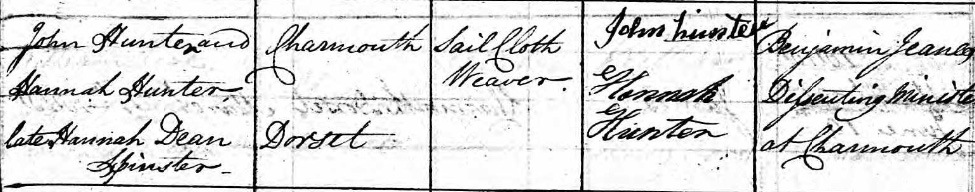 John Hunter and
Hannah Hunter
late Hannah Dean
Spinster
Charmouth
Dorset
Sail Cloth
Weaver.
John hunter
Hannah
Hunter
Benjamin Jeanes
Dissenting Minister
at Charmouth